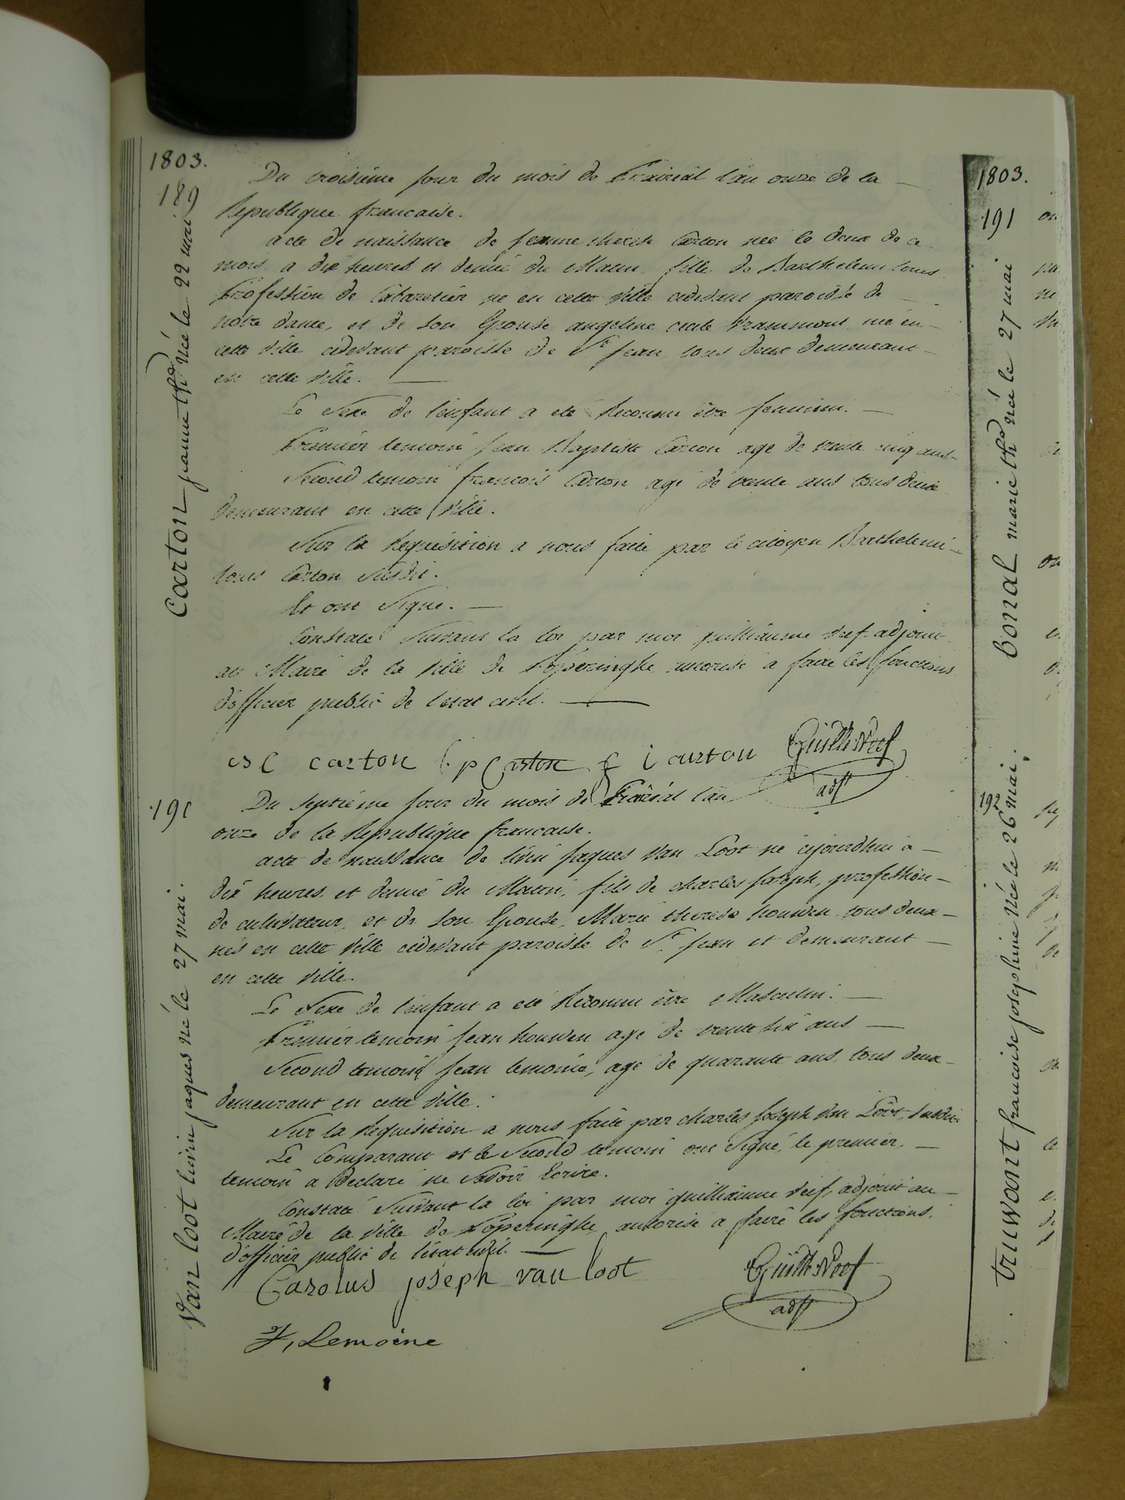 1803.
189
Carton jeanne thé née le 22 mai
Du troisième jour du mois de Prairial l'an onze de la
République francaise.
acte de naissance de jeanne therese Carton née le deux de ce
mois a dix heures et demie du Matin, fille de Barthelemi louis
Profession de Cabaretier né en cette ville cidevant paroisse de
notre dame, et de son Epouse angeline cecile née en
cette ville cidevant paroisse de St jean tous deux demeurant
en cette ville.
Le Sexe de l'enfant a eté Reconnu être feminin.
Premier temoin jean Baptiste Carton agé de trente cinq ans
Second temoin francois Carton agé de trente ans tous deux
demeurant en cette ville.
Sur la Requisition a nous faite par le citoyen Barthelemi
louis Carton Susdit.
Et ont Signé.
Constaté Suivant la loi par moi guilliaume adjoint
au Maire de la Ville de Poperinghe autorisé a faire les fonctions
d'officier public de l'etat civil.
B L carton j b Carton f i carton
adjt
191
Van loot livin jaques né le 27 mai.
Du Septième jour du mois de Prairial l'an
onze de la République francaise.
acte de naissance de livin jaques Van Loot né cejourdhui a
dix heures et demie du Matin, fils de charles joseph, profession
de cultivateur, et de son Epouse, Marie therese houwen tous deux
nés en cette ville cidevant paroisse de St jean et demeurant
en cette ville.
Le Sexe de l'enfant a eté Reconnu être Masculin.
Premier temoin jean houwen agé de trente six ans
Second temoin jean lemoine, agé de quarante ans, tous deux
demeurant en cette ville.
Sur la Requisition a nous faite par charles joseph Van Loot Susdit.
Le Comparant et le Second temoin ont Signé, le premier
temoin a Declaré ne Savoir Ecrire.
Constaté Suivant la loi par moi guilliaume adjoint au
Maire de la ville de Poperinghe, autorisé a faire les fonctions
d'officier public de l'etat civil.
Carolus joseph van loot
adjt
J, Lemoine
1803.
191
Bonal marie thé née le 27 mai
192
truwant francoise josephine née le 26 mai.